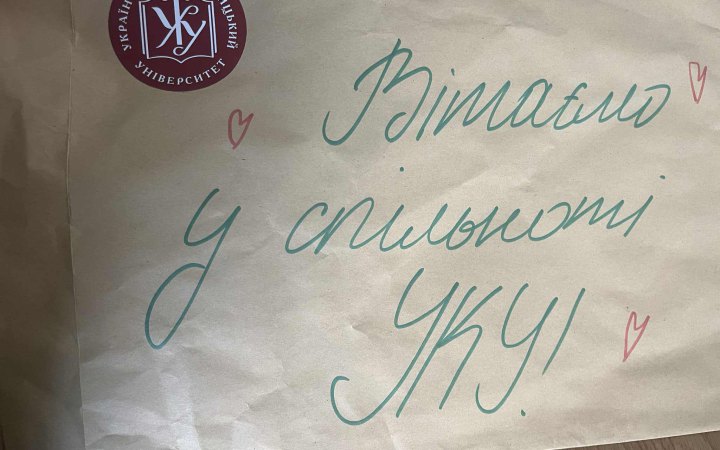 УКРАЇН ИЦЬКИЙ
УКУ
УНІВЕРСИТЕТ
Вітаємо
у спільноті
УКУ!